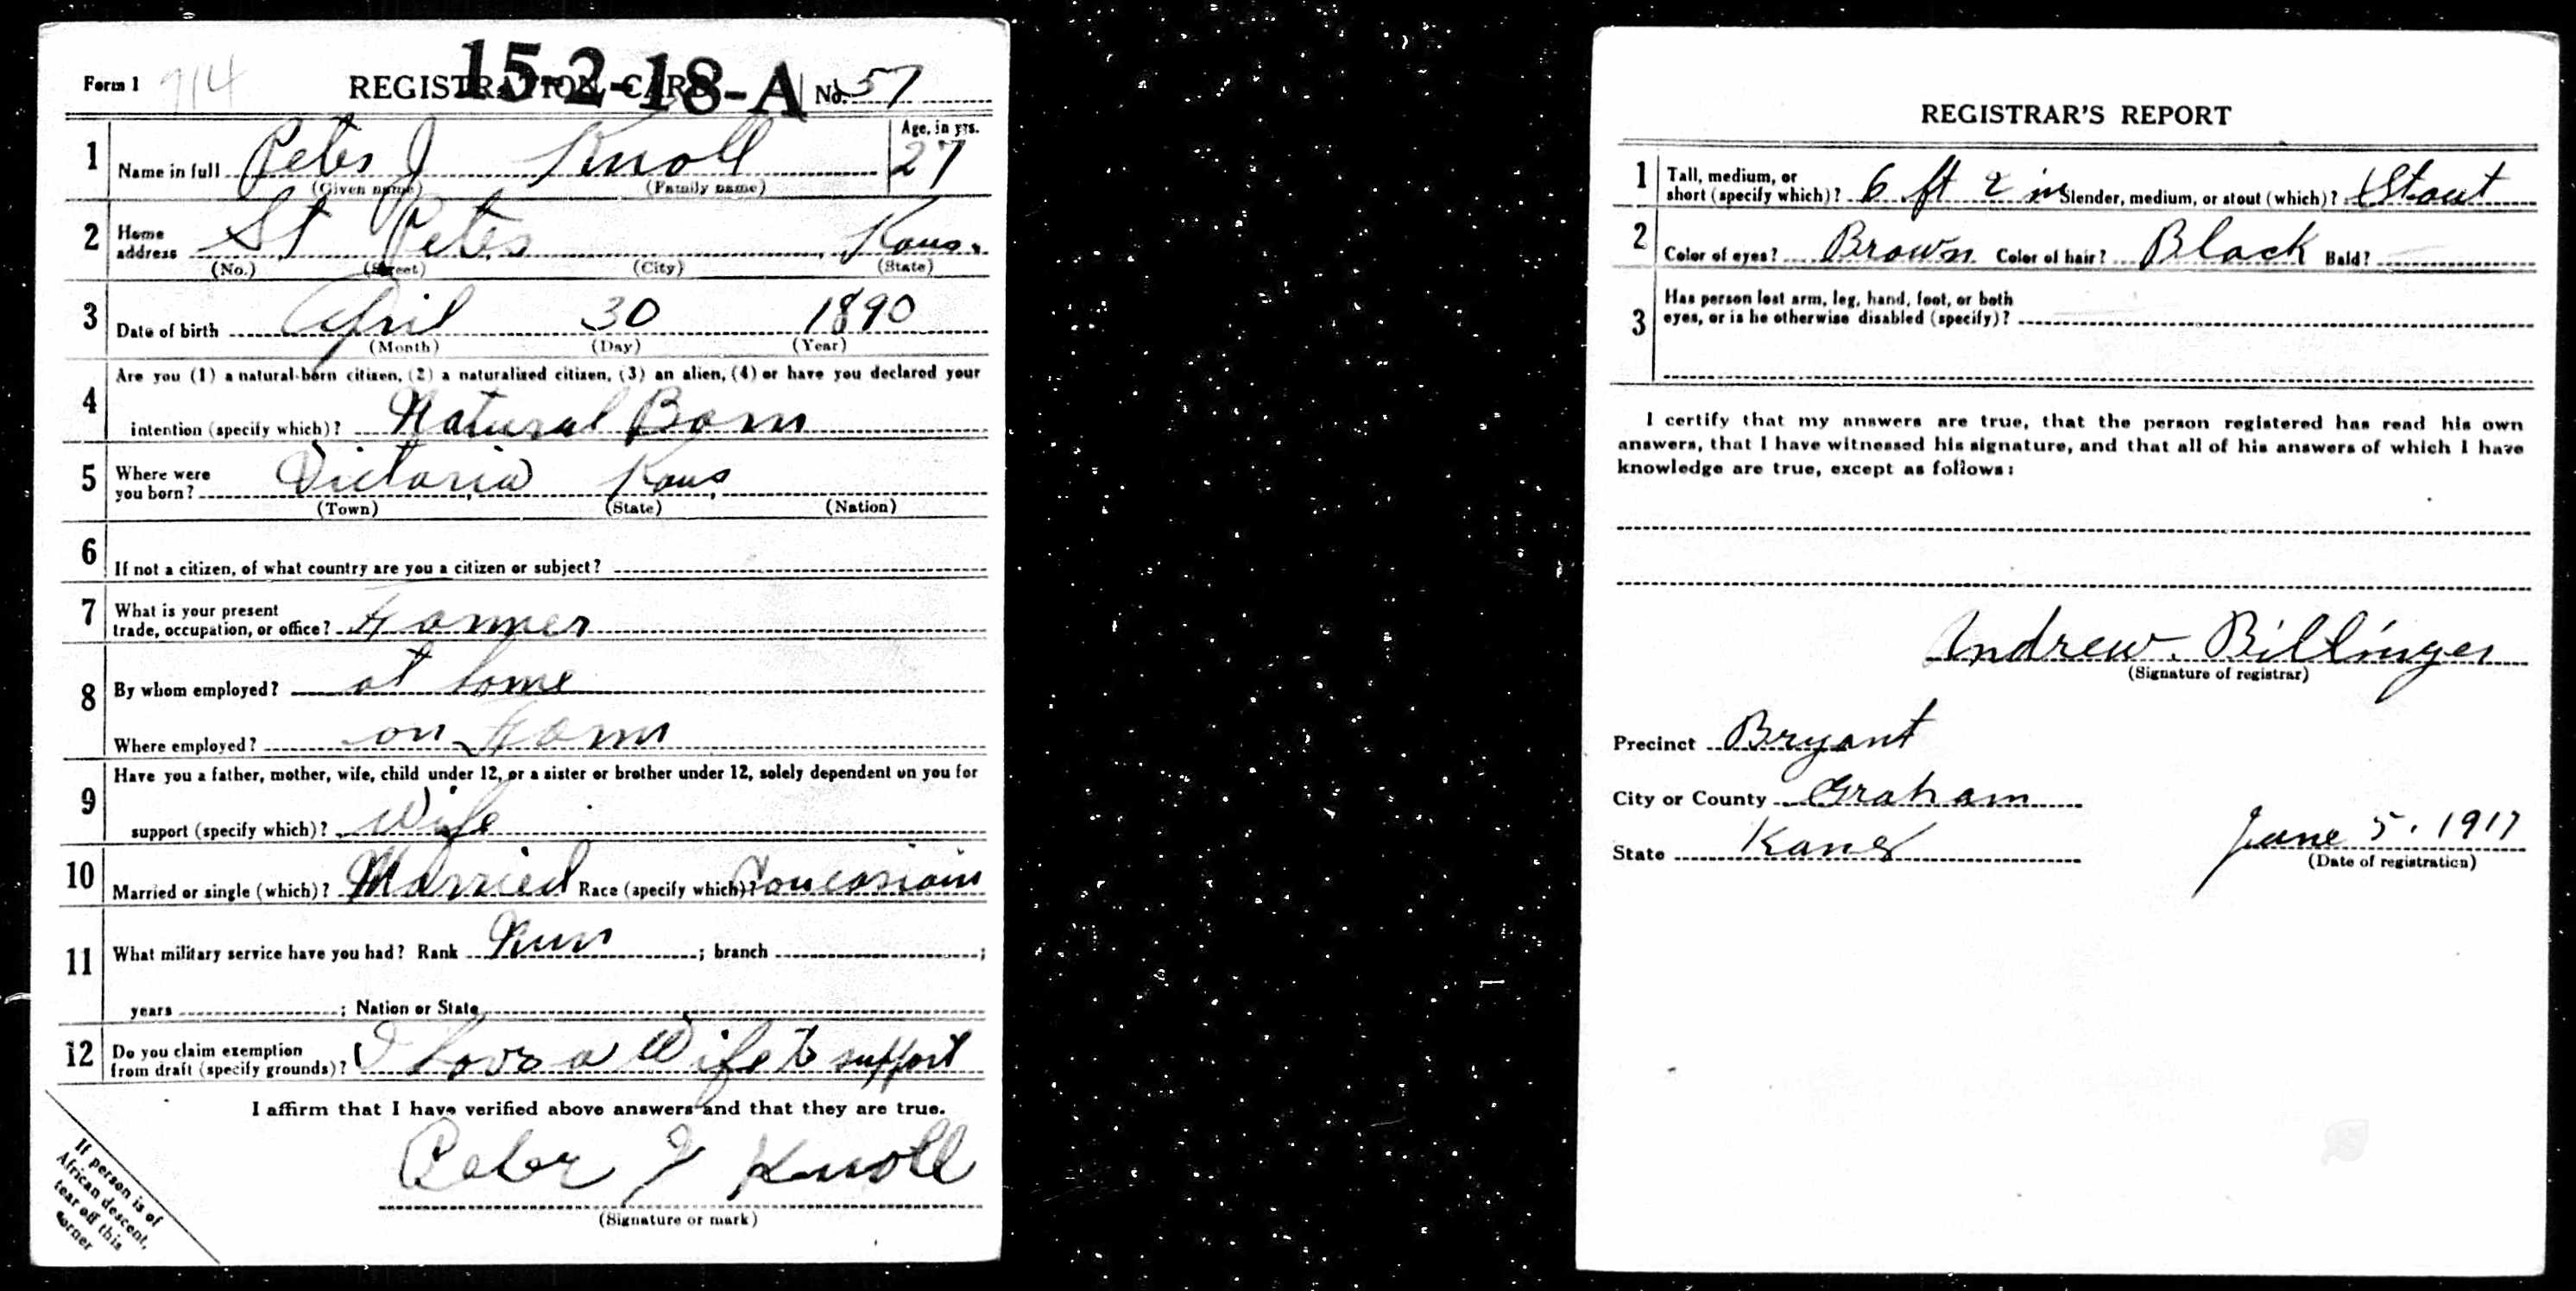 Form 1 914 REGISTRATION CARD No. 57
15-2-18-A
1 Name in full Peter J Knoll Age, in yrs. 27
(Given name) (Family name)
2 Home address St Peter, Kans.
(No.) (Street) (City) (State)
3 Date of birth April 30 1890
(Month) (Day) (Year)
4 Are you (1) a natural-born citizen, (2) a naturalized citizen, (3) an alien, (4) or have you declared your
intention (specify which)? Natural Born
5 Where were you born? Victoria Kans
(Town) (State) (Nation)
6 If not a citizen, of what country are you a citizen or subject?
7 What is your present
trade, occupation, or office? Farmer
8 By whom employed? at home
Where employed? on Farm
9 Have you a father, mother, wife, child under 12, or a sister or brother under 12, solely dependent on you for
support (specify which)? Wife
10 Married or single (which)? Married Race (specify which)? Coucasioin
11 What military service have you had? Rank Nun ; branch ;
years ; Nation or State
12 Do you claim exemption
from draft (specify grounds)? I have a Wife to support
I affirm that I have verified above answers and that they are true.
Peter J Knoll
(Signature or mark)
If person is of
African descent,
tear off this
corner
REGISTRAR'S REPORT
1 Tall, medium, or
short (specify which)? 6 ft 2 in Slender, medium, or stout (which)? Stout
2 Color of eyes? Brown Color of hair? Black Bald?
3 Has person lost arm, leg, hand, foot, or both
eyes, or is he otherwise disabled (specify)?
I certify that my answers are true, that the person registered has read his own
answers, that I have witnessed his signature, and that all of his answers of which I have
knowledge are true, except as follows:
Andrew. Billinger
(Signature of registrar)
Precinct Bryant
City or County Graham
State Kans
June 5. 1917
(Date of registration)